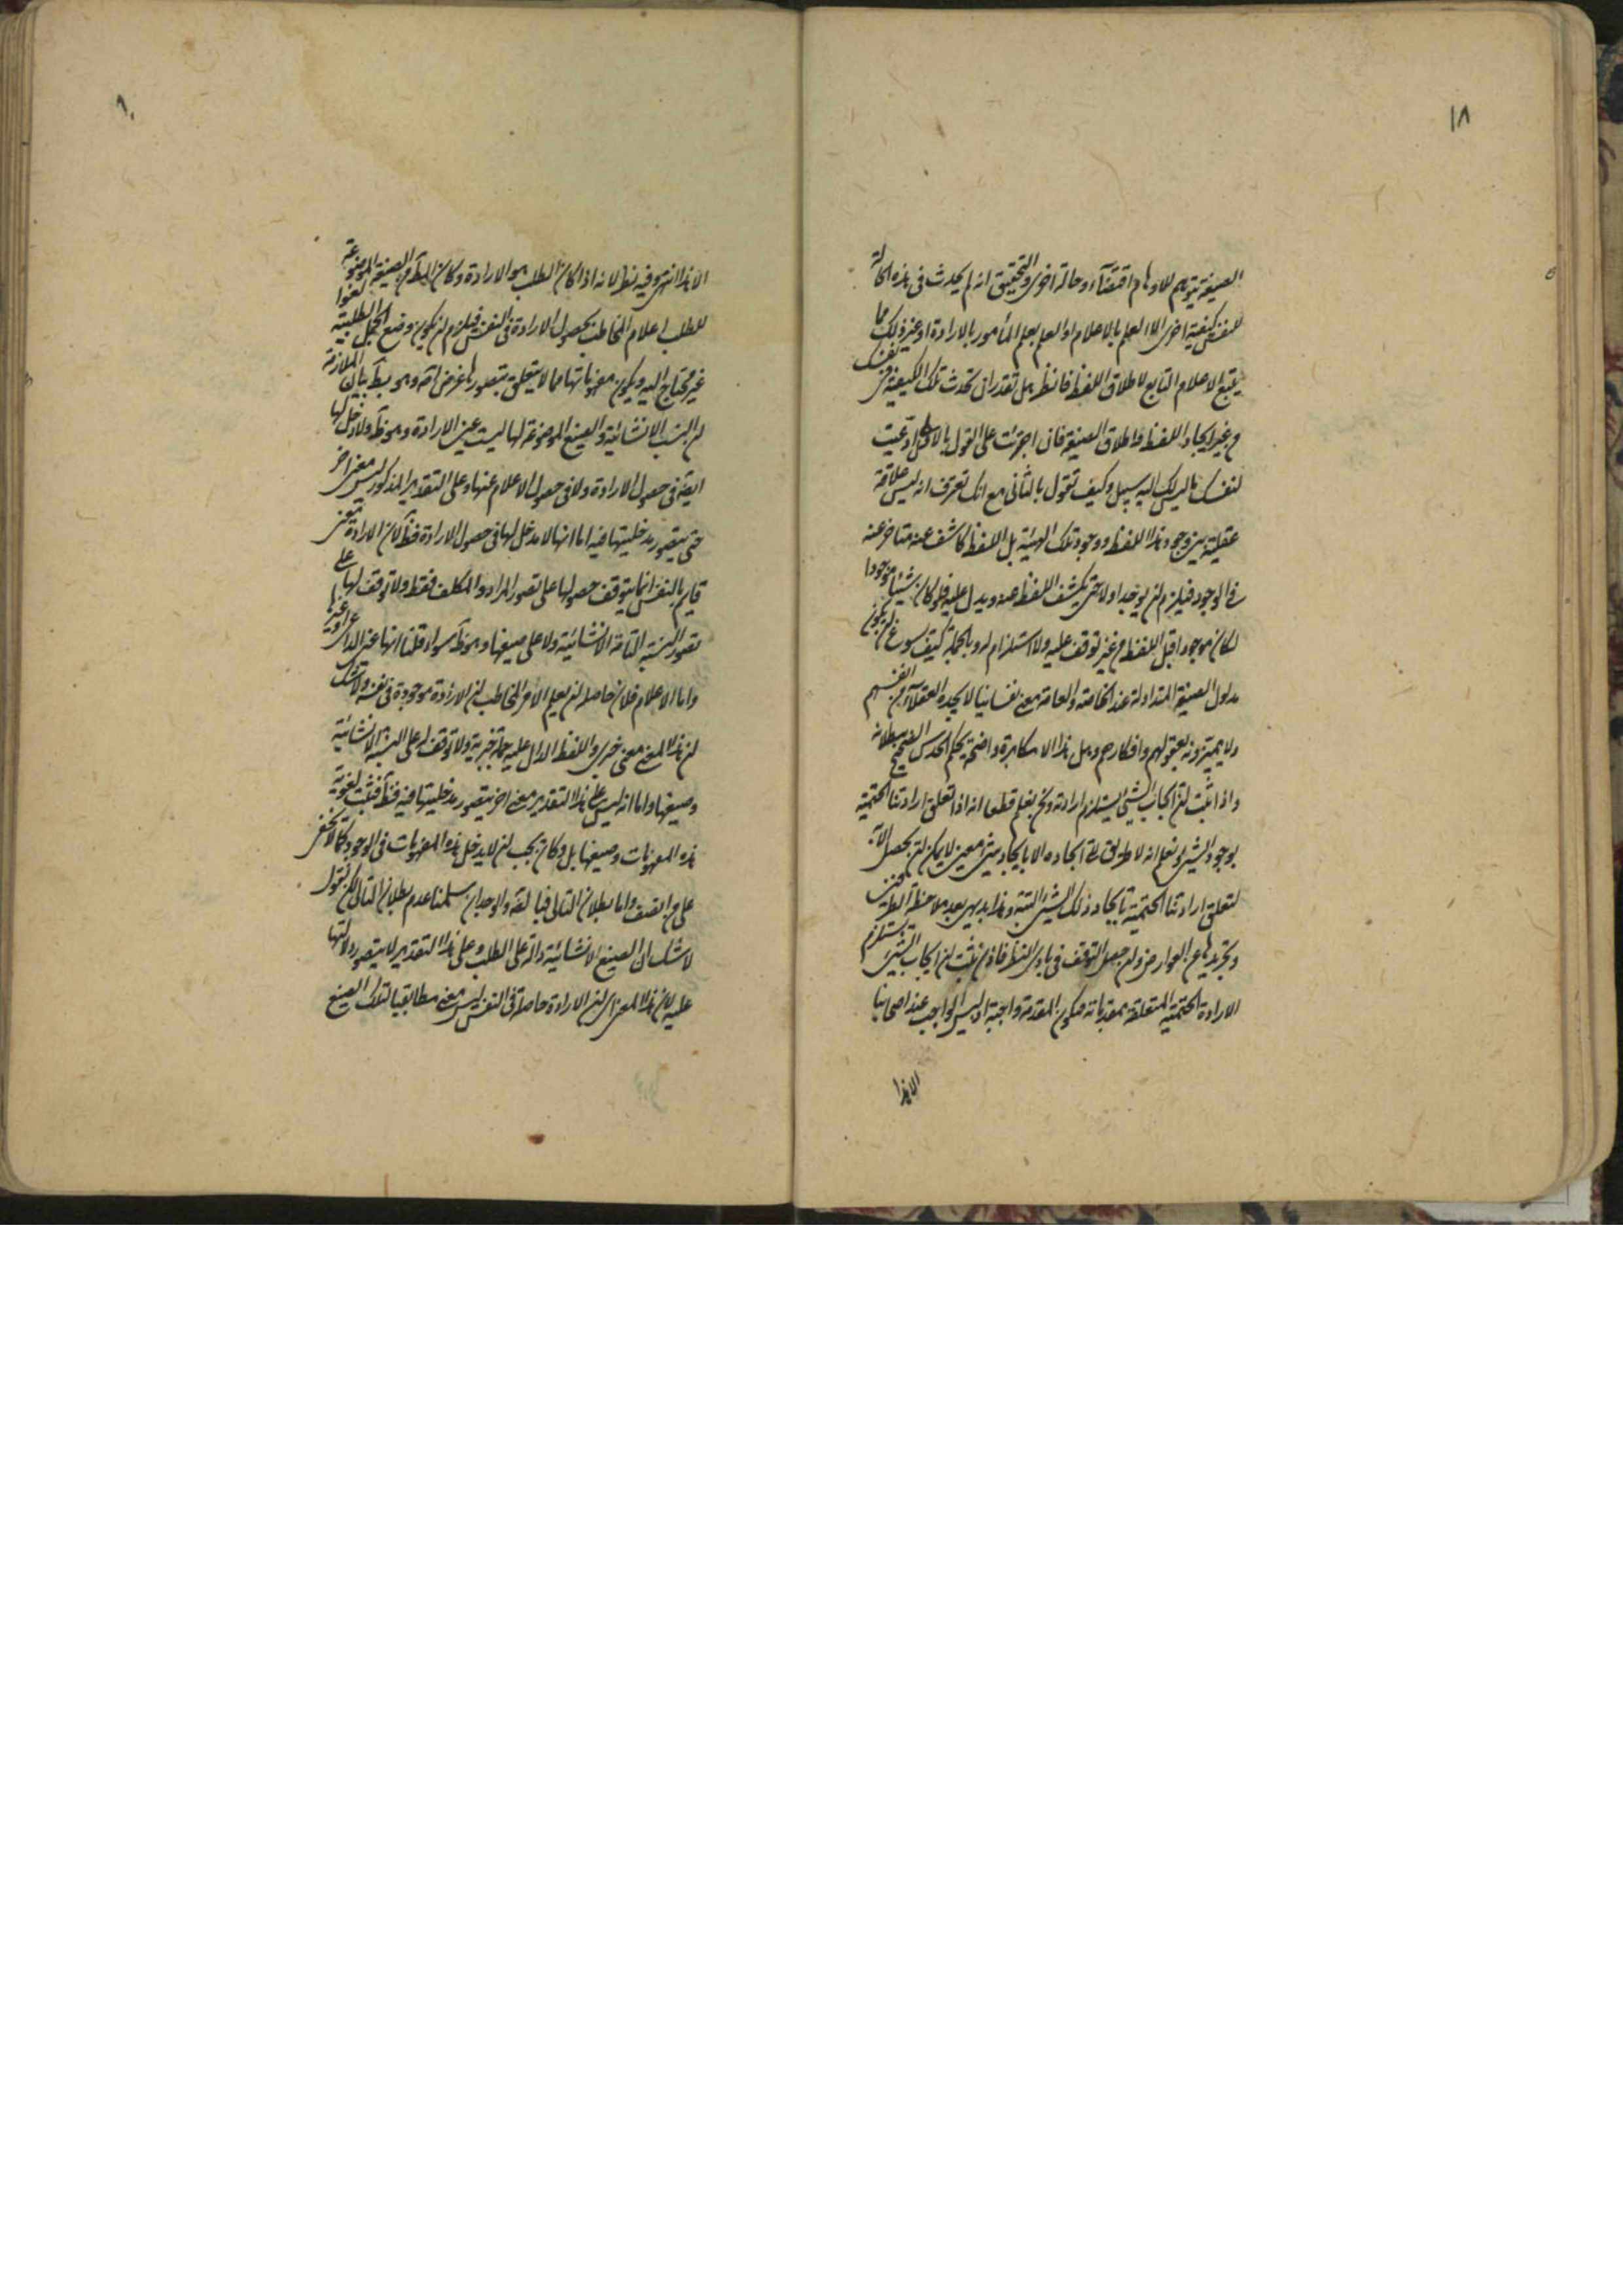 ١٨
الصيغة يتوهم للاوهام اقتضاء وحالة اخرى والتحقيق انه لم يحدث فى هذه الحالة
للنفس كيفية اخرى الا العلم بالاعلام او العلم بعلم المأمور بالارادة او غير ذلك مما
يتبع الاعلام التابع لاطلاق اللفظ فانظر هل تقدر ان تحدث تلك الكيفية فى نفسك
من غير ايجاد اللفظ واطلاق الصيغة فان اجترئت على القول بالاول ادعيت
لنفسك ما ليس لك اليه سبيل وكيف تقول بالثانى مع انك تعرف انه ليس علاقة
عقلية بين وجود هذا اللفظ ووجود تلك الهيئة بل اللفظ كاشف عنه متاخر عنه
فى الوجود فيلزم ان يوجد اولا حتى يكشف اللفظ عنه ويدل عليه فلو كان شيئا موجودا
لكان موجودا قبل اللفظ من غير توقف عليه ولا استلزام له وبالجملة كيف يسوغ ان يكون
مدلول الصيغة المتداولة عند الخاصة والعامة معنى نفسانيا لا يجده العقلاء من انفسهم
ولا يميزونه بعقولهم وافكارهم وهل هذا الا مكابرة واضحة يحكم الحدس الصحيح ببطلانه
واذا ثبت ان ايجاب الشىء يستلزم ارادته ونحن نعلم قطعا انه اذا تعلق ارادتنا الحتمية
بوجود الشىء ونعلم انه لا طريق الى ايجاده الا بايجاد شىء معين لا يمكن ان يحصل الا به
لتعلق ارادتنا الحتمية بايجاد ذلك الشىء البتة وهذا بديهى بعد ملاحظة الطرفين
وتجريدها عن العوارض ولو حصل التوقف فى بادى النظر فاذن ثبت ان ايجاب الشىء يستلزم
الارادة الحتمية المتعلقة بمقدماته فيكون المقدمة واجبة اذ ليس الواجب عند اصحابنا
الا هذا
الا هذا انتهى وفيه نظر لانه اذا كان الطلب هو الارادة وكان المراد من الصيغة الموضوعة
للطلب اعلام المخاطب بحصول الارادة فى النفس فيلزم ان يكون وضع الجمل الطلبية لغوا
غير محتاج اليه ويكون مفهوماتها مما لا يتعلق بتصورها غرض اصلا وهو بط بيان الملازمة
ان النسب الانشائية والصيغ الموضوعة لها ليست عين الارادة وهو ظ ولا دخل لها
ايضا فى حصول الارادة ولا فى حصول الاعلام عنها وعلى التقدير المذكور ليس معنى اخر
حتى يتصور مدخليتها فيه اما انها لا مدخل لها فى حصول الارادة فظ لان الارادة معنى
قايم بالنفس انما يتوقف حصولها على تصور المراد والمكلف فقط ولا توقف لها على
تصور النسبة التامة الانشائية ولا على صيغها وهو ظ سواء قلنا انها عين الداعى او غيرها
واما الاعلام فلان حاصله ان يعلم الامر المخاطب ان الارادة موجودة فى نفسه ولا شك
ان هذا المعنى معنى خبرى واللفظ الدال عليه جملة خبرية ولا توقف له على النسبة الانشائية
وصيغها واما انه ليس على هذا التقدير معنى اخر يتصور مدخليتها فيه فظ فثبت لغوية
هذه المفهومات وصيغها بل وكان يجب ان لا يدخل هذه المفهومات فى الوجود كما لا يخفى
على من انصف واما بطلان التالى فبالضرورة والوجدان سلمنا عدم بطلان التالى لكن نقول
لا شك ان الصيغ الانشائية دالة على الطلب وعلى هذا التقدير لا يتصور دلالتها
عليه لان هذا المعنى اى ان الارادة حاصلة فى النفس ليس معنى مطابقيا لتلك الصيغ